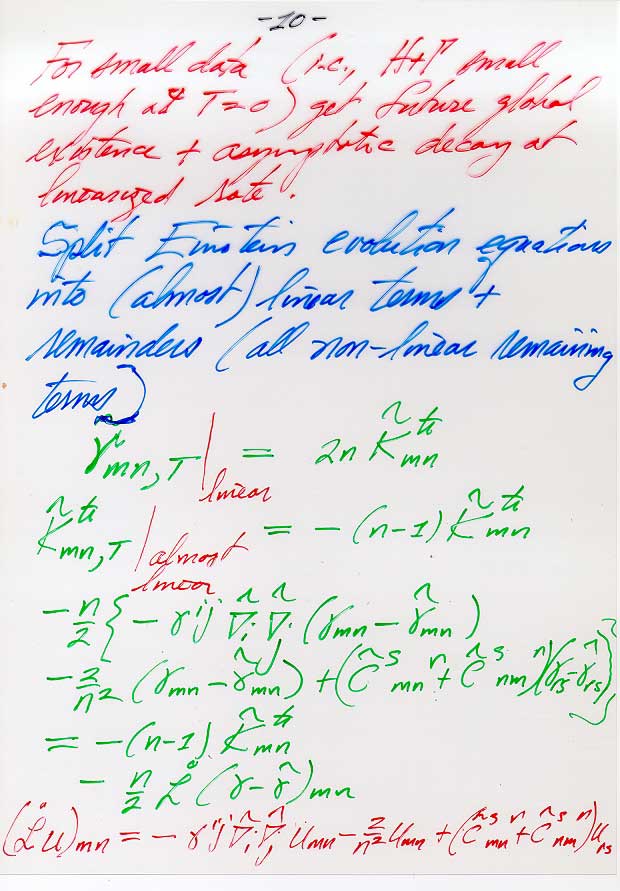 -10-
For small data (i.e., H+Γ small
enough at T=0) get future global
existence + asymptotic decay at
linearized rate.
Split Einstein evolution equations
into (almost) linear terms +
remainders (all non-linear remaining
terms)
γ_{mn,T}|_{linear} = 2n K̃^{tr}_{mn}
K̃^{tr}_{mn,T}|_{almost linear} = -(n-1) K̃^{tr}_{mn}
-n/2 { -γ^{ij} ∇̂_i ∇̂_j (γ_{mn} - γ̂_{mn})
-2/n² (γ_{mn} - γ̂_{mn}) + (Ĉ^s_{mn}^r + Ĉ^s_{nm}^r)(γ_{rs} - γ̂_{rs}) }
= -(n-1) K̃^{tr}_{mn}
- n/2 L̊ (γ - γ̂)_{mn}
(L̊u)_{mn} = -γ^{ij} ∇̂_i ∇̂_j u_{mn} - 2/n² u_{mn} + (Ĉ^s_{mn}^r + Ĉ^s_{nm}^r) u_{rs}